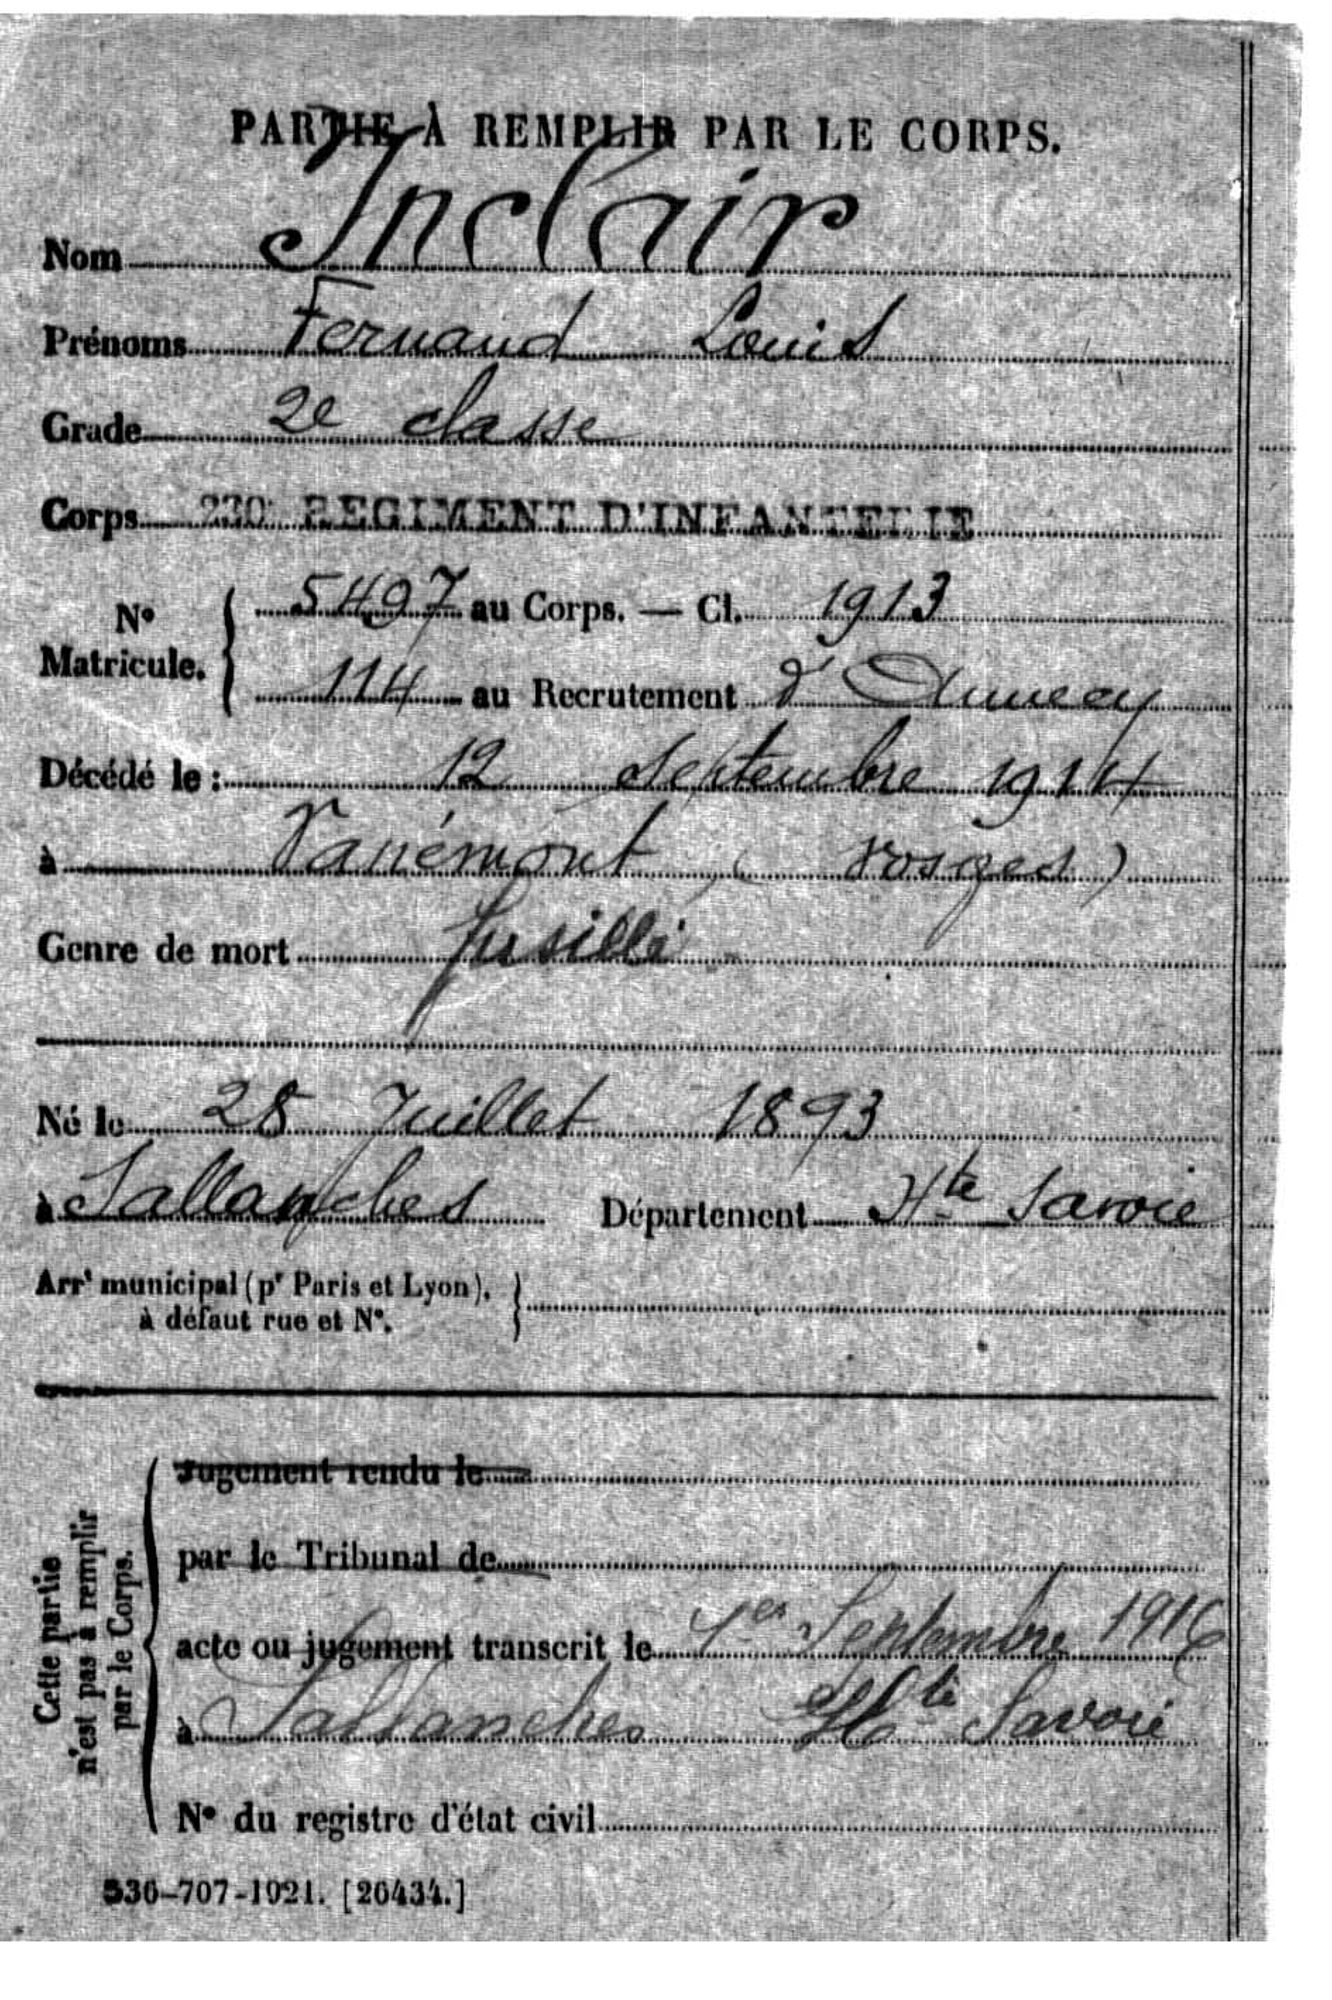 PARTIE À REMPLIR PAR LE CORPS.
Nom Inclair
Prénoms Fernand Louis
Grade 2e classe
Corps 230e REGIMENT D'INFANTERIE
No Matricule. { 5497 au Corps. — Cl. 1913
114 au Recrutement d'Annecy
Décédé le : 12 Septembre 1914
à Vanémont (Vosges)
Genre de mort fusillé
Né le 28 Juillet 1893
à Sallanches Département Hte Savoie
Arrt municipal (pr Paris et Lyon), à défaut rue et No. }
Cette partie n'est pas à remplir par le Corps.
Jugement rendu le
par le Tribunal de
acte ou jugement transcrit le 1er Septembre 1916
à Sallanches Hte Savoie
No du registre d'état civil
536-707-1921. [26434.]